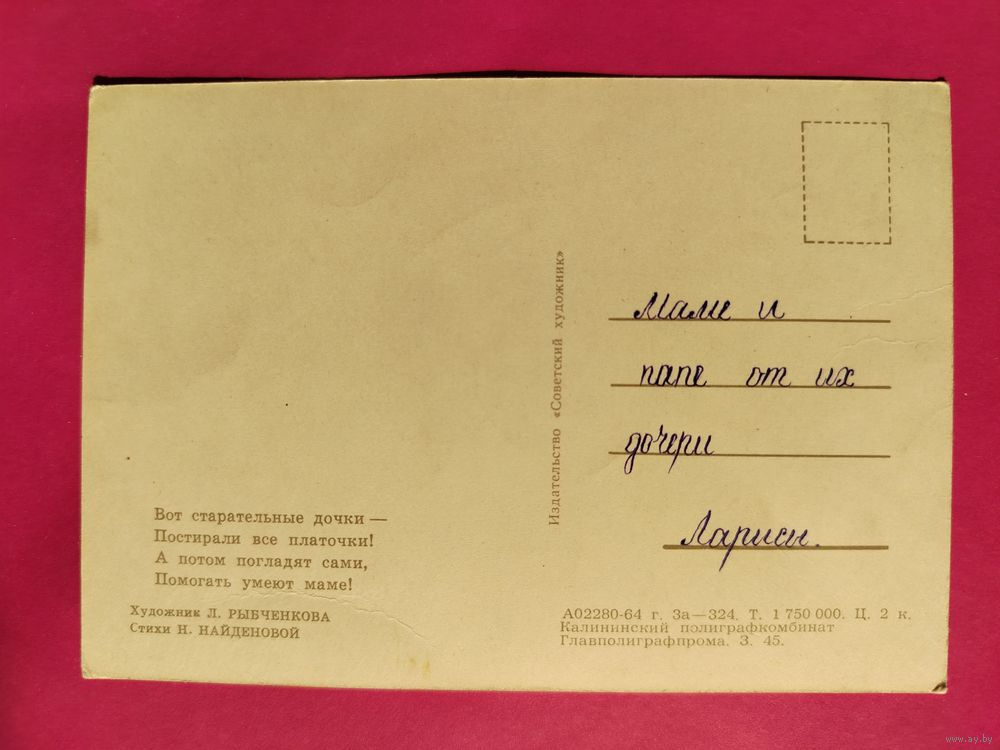 Вот старательные дочки —
Постирали все платочки!
А потом погладят сами,
Помогать умеют маме!
Художник Л. РЫБЧЕНКОВА
Стихи Н. НАЙДЕНОВОЙ
Издательство «Советский художник»
Маме и
папе от их
дочери
Ларисы.
А02280-64 г. За—324. Т. 1 750 000. Ц. 2 к.
Калининский полиграфкомбинат
Главполиграфпрома. З. 45.
www.ay.by